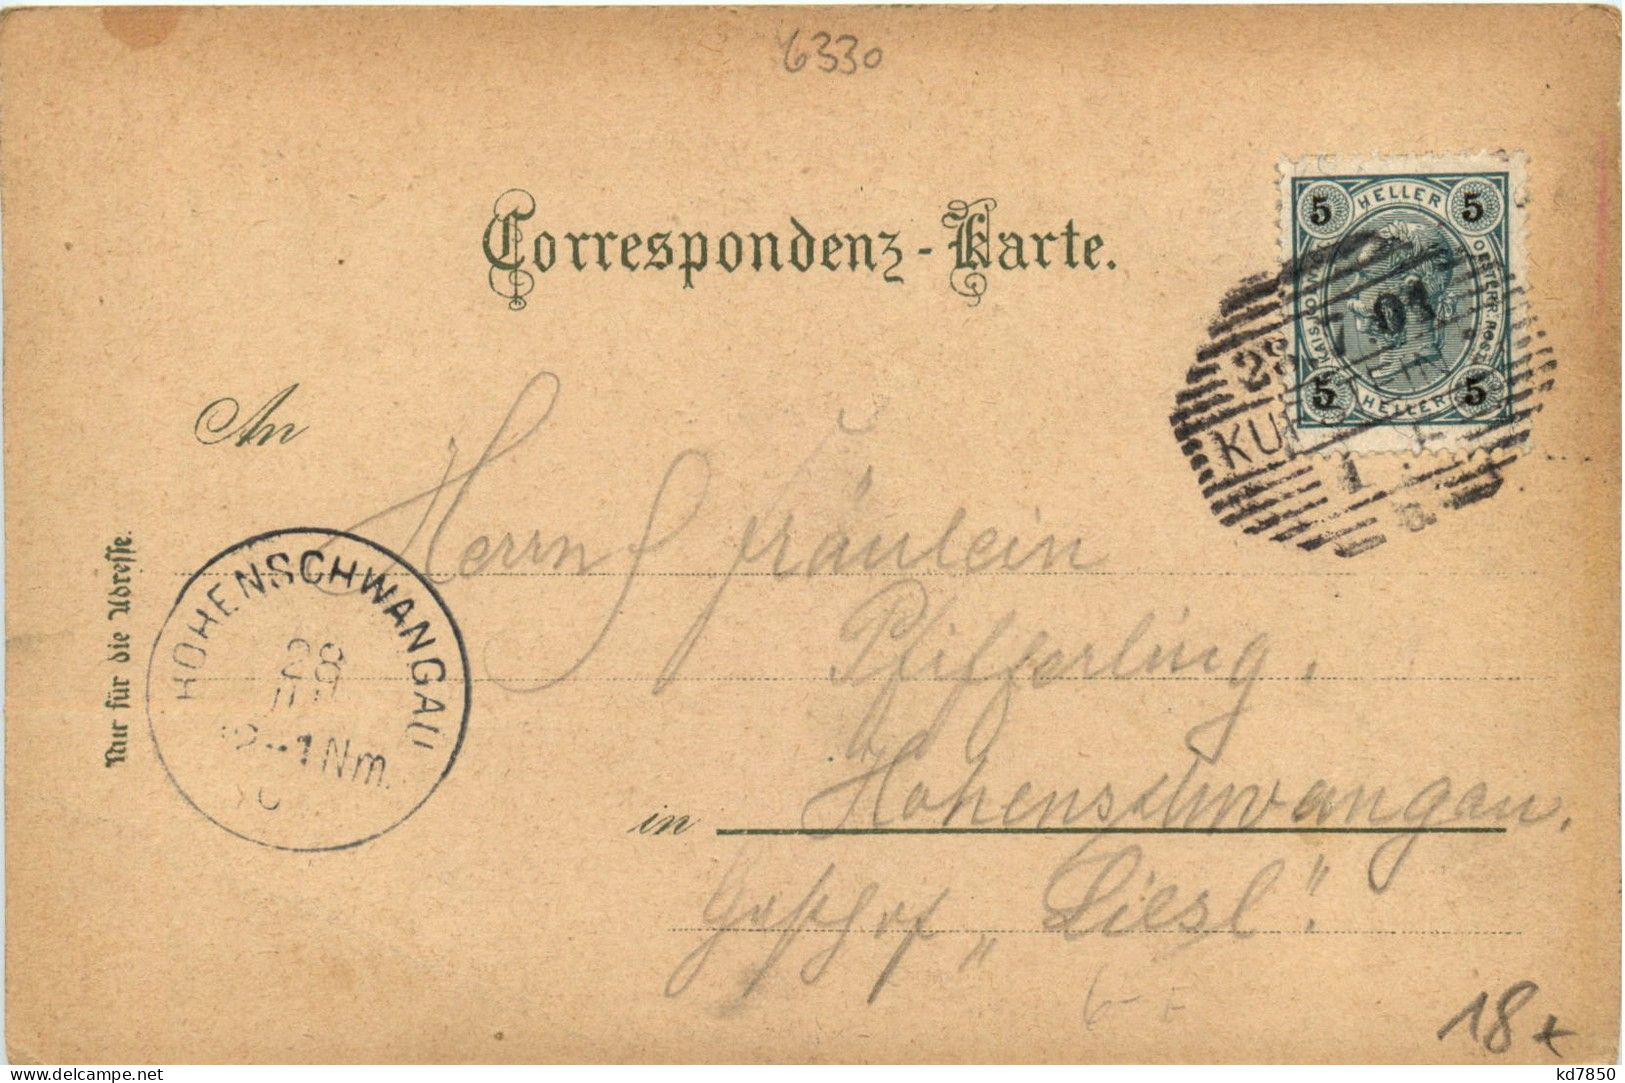 6330
Correspondenz-Karte.
5 HELLER 5
KAIS. KÖNIGL. OESTERR. POST
5 HELLER 5
28 7 01
KUFSTEIN
1
a
An
Herrn Fräulein
Pfifferling.
in Hohenschwangau.
Gasthof „Liesl".
Nur für die Adresse.
HOHENSCHWANGAU
28
JUL
12-1 Nm.
6-
18
www.delcampe.net
kd7850